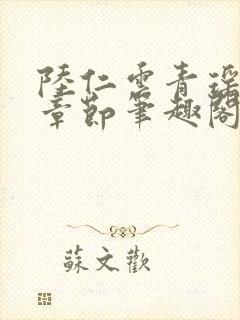 陸仁雲青瑤
章節筆趣閣
蘇文歡